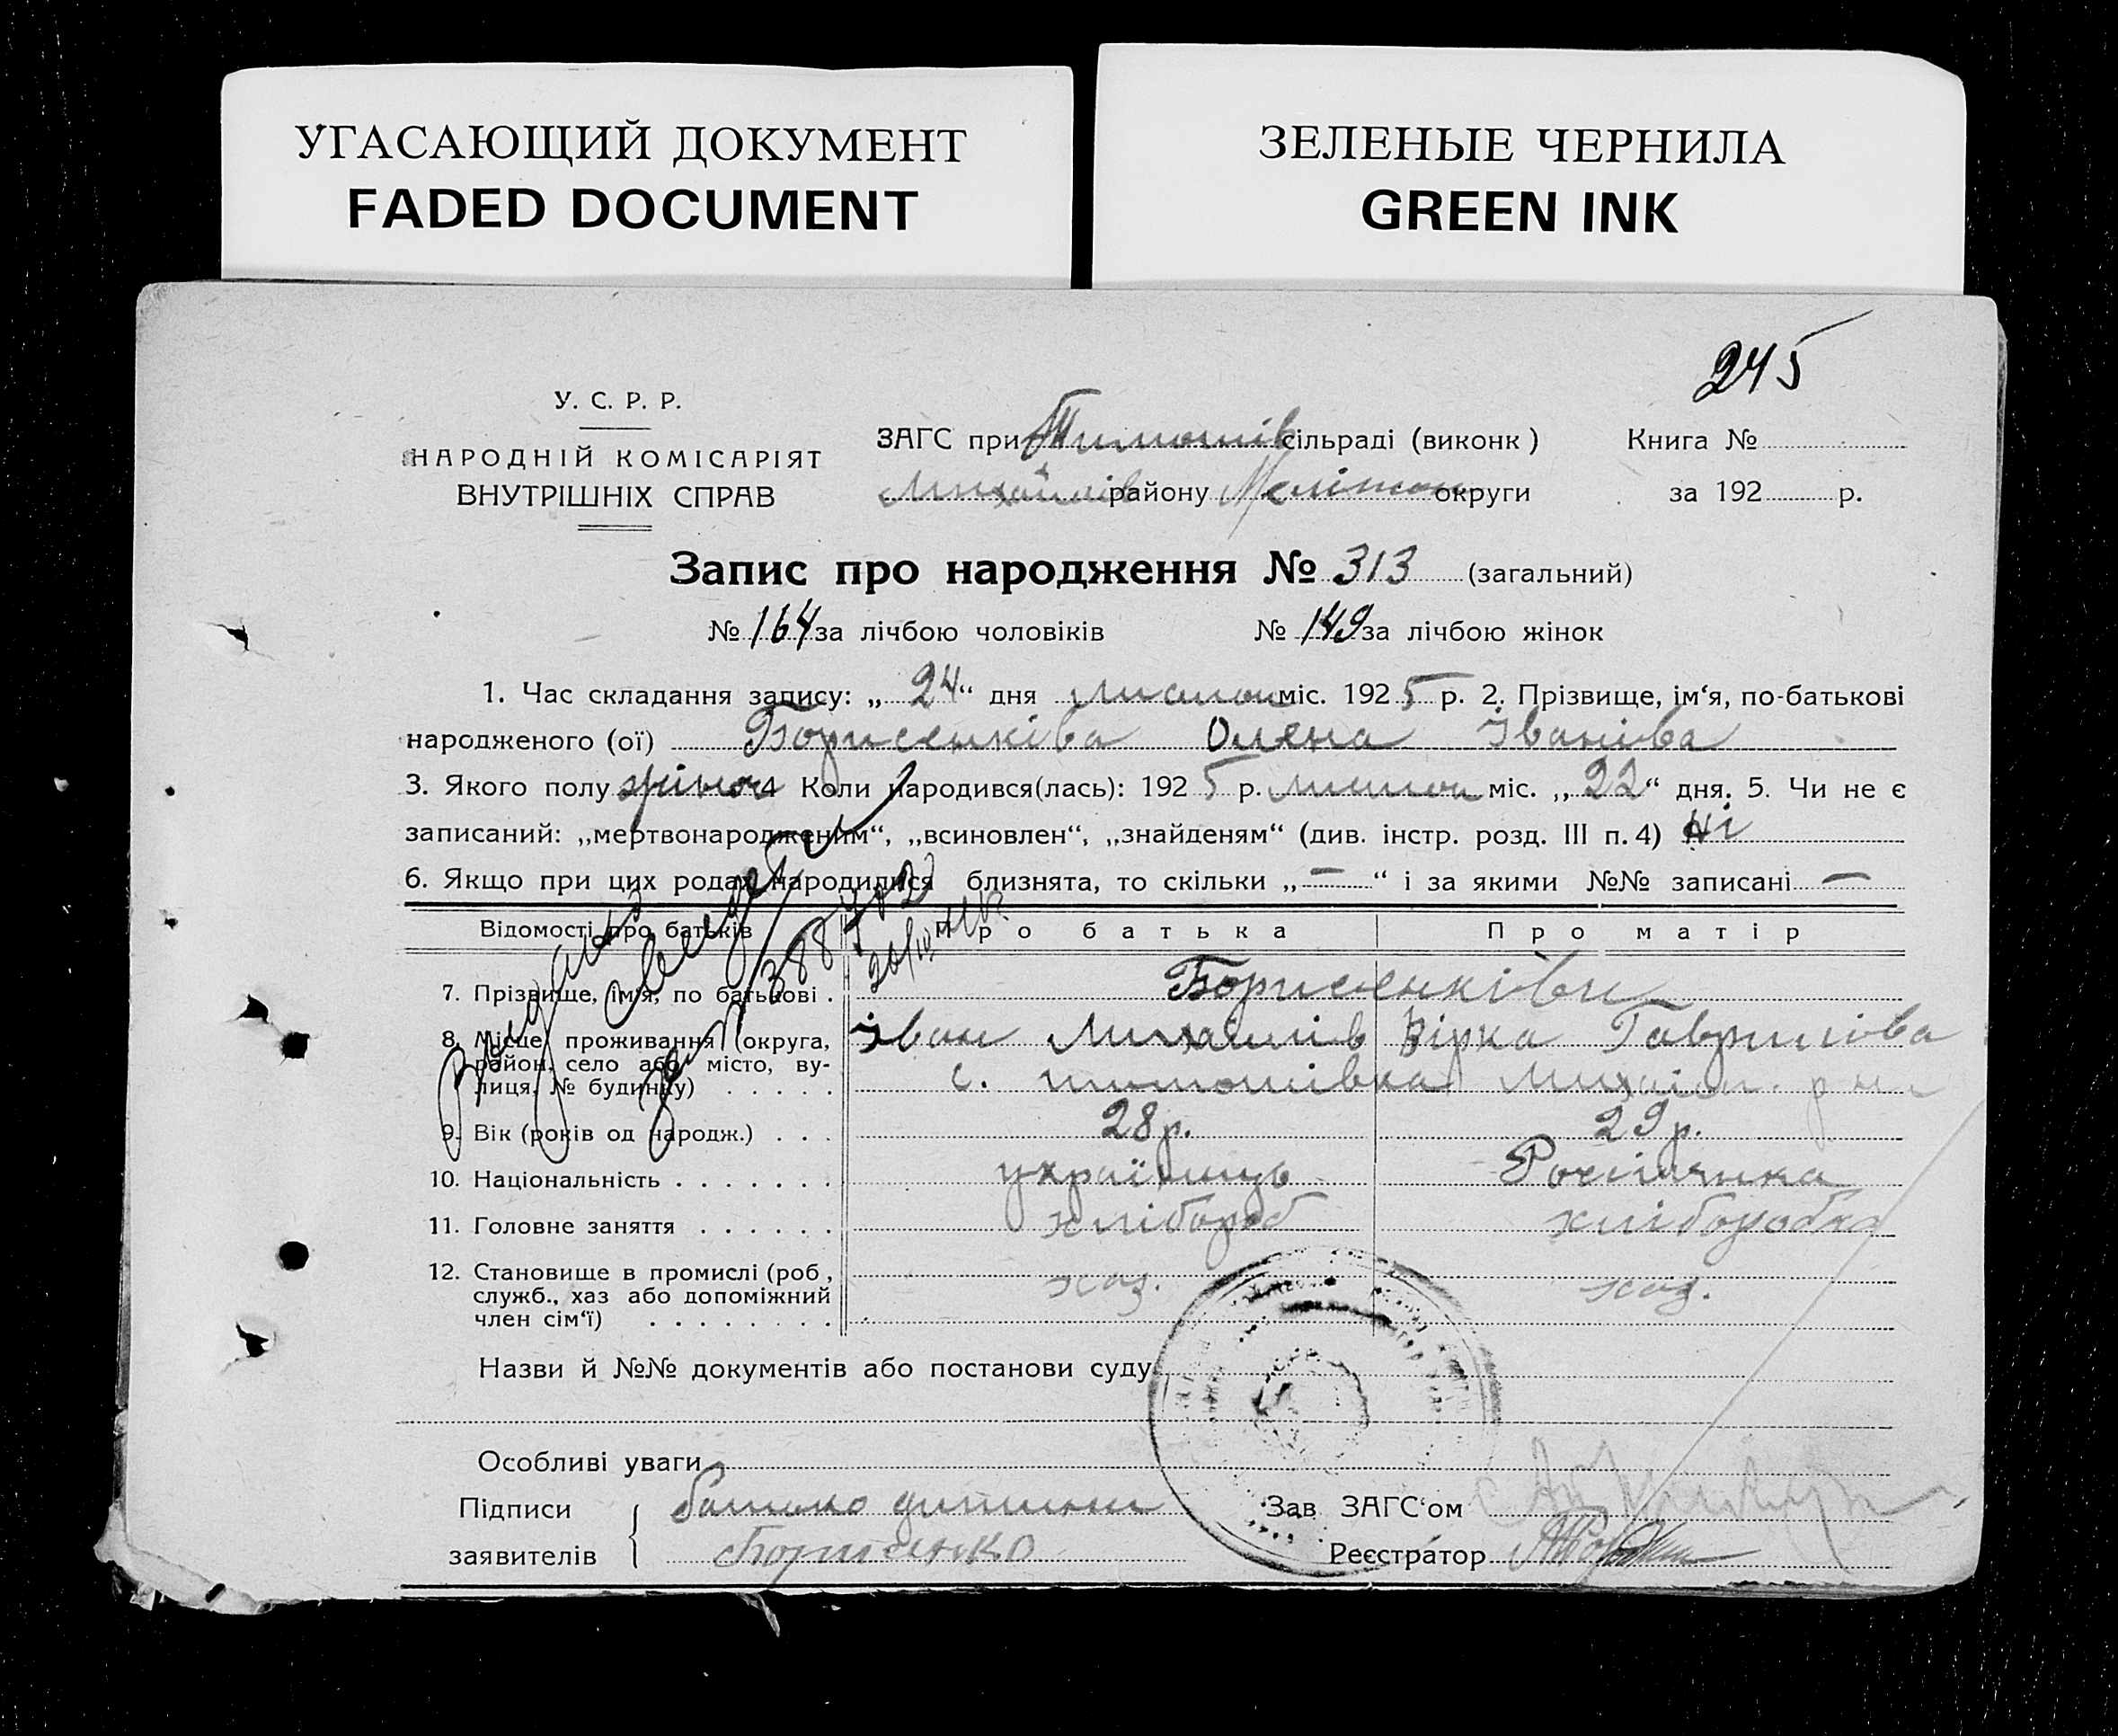 УГАСАЮЩИЙ ДОКУМЕНТ
FADED DOCUMENT
ЗЕЛЕНЫЕ ЧЕРНИЛА
GREEN INK
245
У. С. Р. Р.
НАРОДНІЙ КОМІСАРІЯТ
ВНУТРІШНІХ СПРАВ
ЗАГС при Тимошів сільраді (виконк) Книга №
Михайлів району Мелітоп округи за 192 р.
Запис про народження № 313 (загальний)
№ 164 за лічбою чоловіків № 149 за лічбою жінок
1. Час складання запису: „ 24 “ дня листоп міс. 192 5 р. 2. Прізвище, ім‘я, по-батькові
народженого (ої) Борисенківа Олена Іваніва
3. Якого полу жіноч 4 Коли народився(лась): 192 5 р. листоп міс. „ 22 “ дня. 5. Чи не є
записаний: „мертвонародженим“, „всиновлен“, „знайденям“ (див. інстр. розд. III п. 4) Ні
6. Якщо при цих родах народилися близнята, то скільки „ — “ і за якими №№ записані —
Відомості про батьків Про батька Про матір
7. Прізвище, ім‘я, по батькові . Борисенківи
8. Місце проживання (округа, Іван Михайлів Вірка Гаврилова
район, село або місто, ву-
лиця, № будинку) . . . . . с. тимошівка Михайл. р-ну
9. Вік (років од народж.) . . . 28 р. 29 р.
10. Національність . . . . . . . українць Росіянка
11. Головне заняття . . . . . . хлібороб хлібороба
12. Становище в промислі (роб, хаз. хаз.
служб., хаз або допоміжний
член сім‘ї) . . . . . . . .
Назви й №№ документів або постанови суду
Особливі уваги
Підписи батько дитини Зав ЗАГС‘ом
заявителів Борисенко Реєстратор